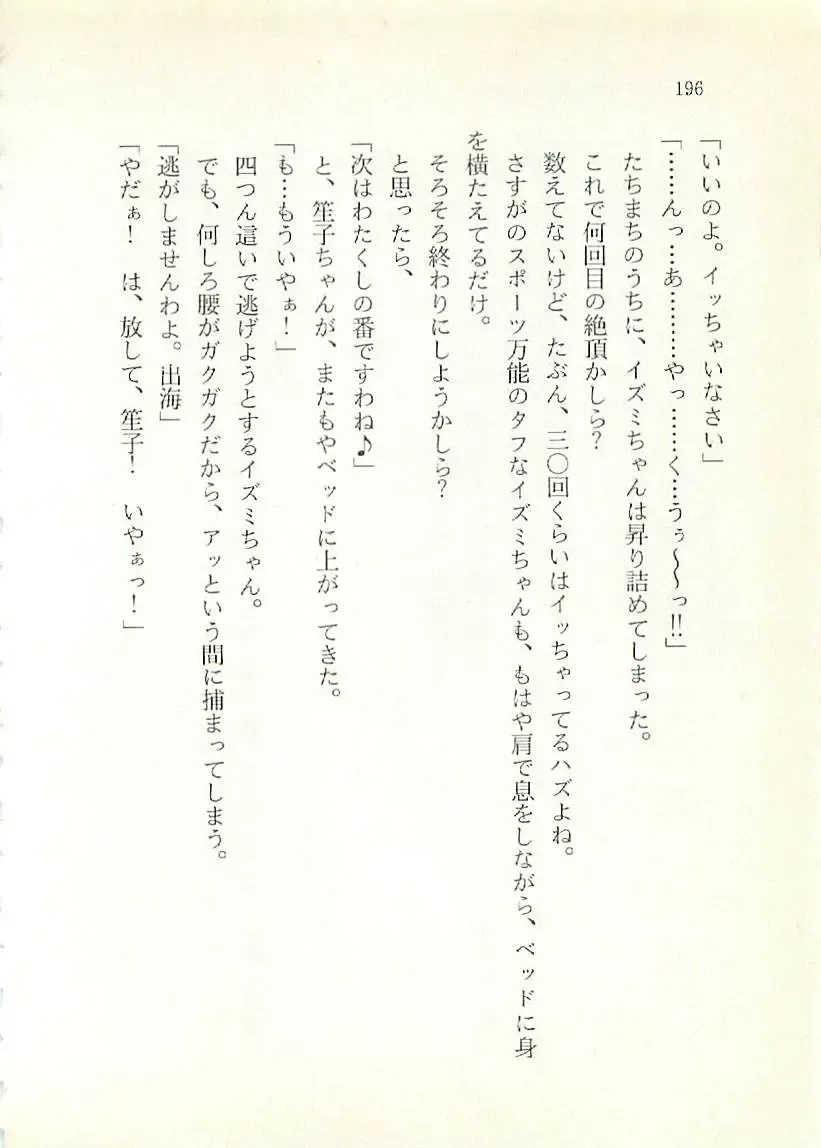 196
「いいのよ。イッちゃいなさい」
「……んっ…あ………やっ……く…うぅ〜〜っ!!」
たちまちのうちに、イズミちゃんは昇り詰めてしまった。
これで何回目の絶頂かしら？
数えてないけど、たぶん、三〇回くらいはイッちゃってるハズよね。
さすがのスポーツ万能のタフなイズミちゃんも、もはや肩で息をしながら、ベッドに身
を横たえてるだけ。
そろそろ終わりにしようかしら？
と思ったら、
「次はわたくしの番ですわね♪」
と、笙子ちゃんが、またもやベッドに上がってきた。
「も…もういやぁ！」
四つん這いで逃げようとするイズミちゃん。
でも、何しろ腰がガクガクだから、アッという間に捕まってしまう。
「逃がしませんわよ。出海」
「やだぁ！　は、放して、笙子！　いやぁっ！」